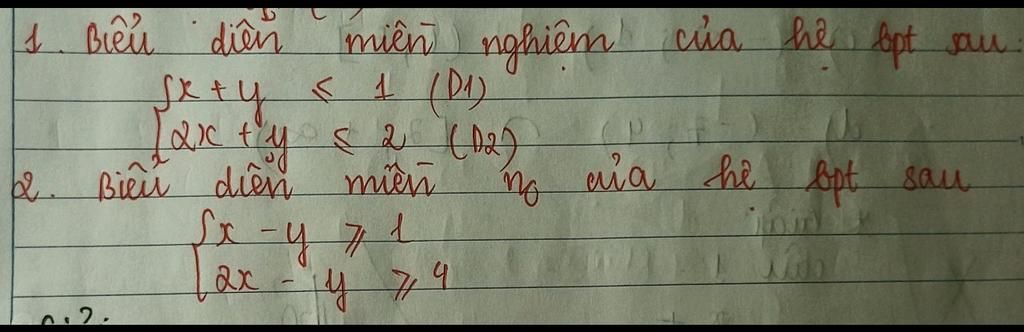 1. Biểu diễn miền nghiệm của hệ bpt sau:
{x + y ≤ 1 (D1)
{2x + y ≤ 2 (D2)
2. Biểu diễn miền no của hệ bpt sau
{x - y ≥ 1
{2x - y ≥ 4